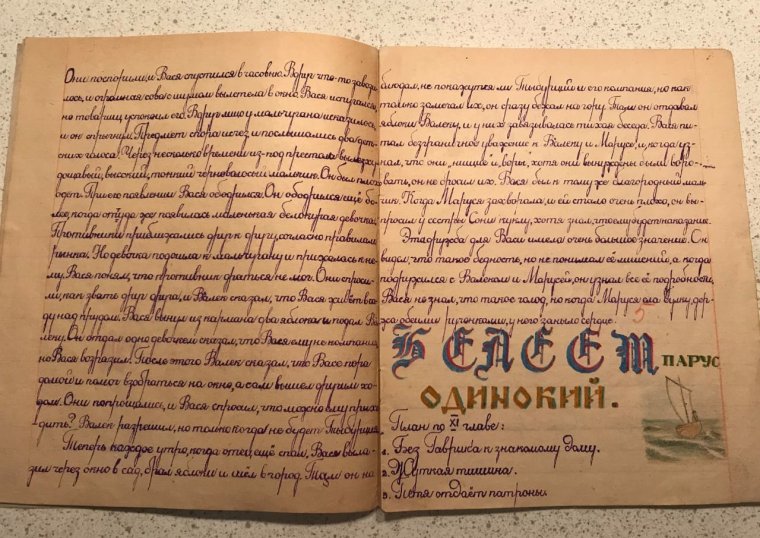 Они поспорили, и Вася спустился в часовню. Вдруг что-то завоза
лось, и огромная сова с шумом вылетела в окно. Вася испугался,
но товарищ успокоил его. Вдруг лицо у мальчугана исказилось,
и он крикнул. Предмет скоро исчез, и послышались два дет-
ских голоса. Через несколько времени из-под престола вылез ху-
дощавый, высокий, тонкий черноволосый мальчик. Он был плохо
одет. При его появлении Вася ободрился. Он ободрился ещё бо-
лее, когда оттуда же появилась маленькая белокурая девочка.
Противники приблизились друг к другу, согласно правилам
рынка. Но девочка подошла к мальчугану и прижалась к не-
му. Вася понял, что противник драться не мог. Они спроси-
ли, как звать друг друга, и Валек сказал, что Вася живёт в са-
ду над прудом. Вася вынул из кармана два яблока и подал Ва
леку. Он отдал одно девочке и сказал, что Вася ему не компания,
но Вася возразил. После этого Валек сказал, что Васе пора
домой и помог взобраться на окно, а сам вышел другим хо-
дом. Они попрощались, и Вася спросил, что можно ему прихо
дить? Валек разрешил, но только когда не будет Тыбурция.
Теперь каждое утро, когда отец ещё спал, Вася выла-
зил через окно в сад, брал яблоки и шёл в город. Там он на
блюдал, не покажутся ли Тыбурций и его компания, но как
только замечал их, он сразу бежал на гору. Там он отдавал
яблоки Валеку, и у них завязывалась тихая беседа. Вася пи-
тал безграничное уважение к Валеку и Марусе, и когда уз-
нал, что они, нищие и воры, хотя они вынуждены были воро-
вать, он не бросил их. Вася был к тому же благородный маль
чик. Когда Маруся захворала, и ей стало очень плохо, он вы-
просил у сестры Сони куклу, хотя знал, что ему будет наказание.
Эта дружба для Васи имела очень большое значение. Он
видел, что такое бедность, но не понимал её лишений, а когда
подружился с Валеком и Марусей, он узнал все её подробности.
Вася не знал, что такое голод, но когда Маруся ела булку, дер-
жа обеими ручонками, у него заныло сердце.
5
БЕЛЕЕТ ПАРУС
ОДИНОКИЙ.
План по XI главе:
1. Без Гаврика к знакомому дому.
2. Жуткая тишина.
3. Петя отдаёт патроны.